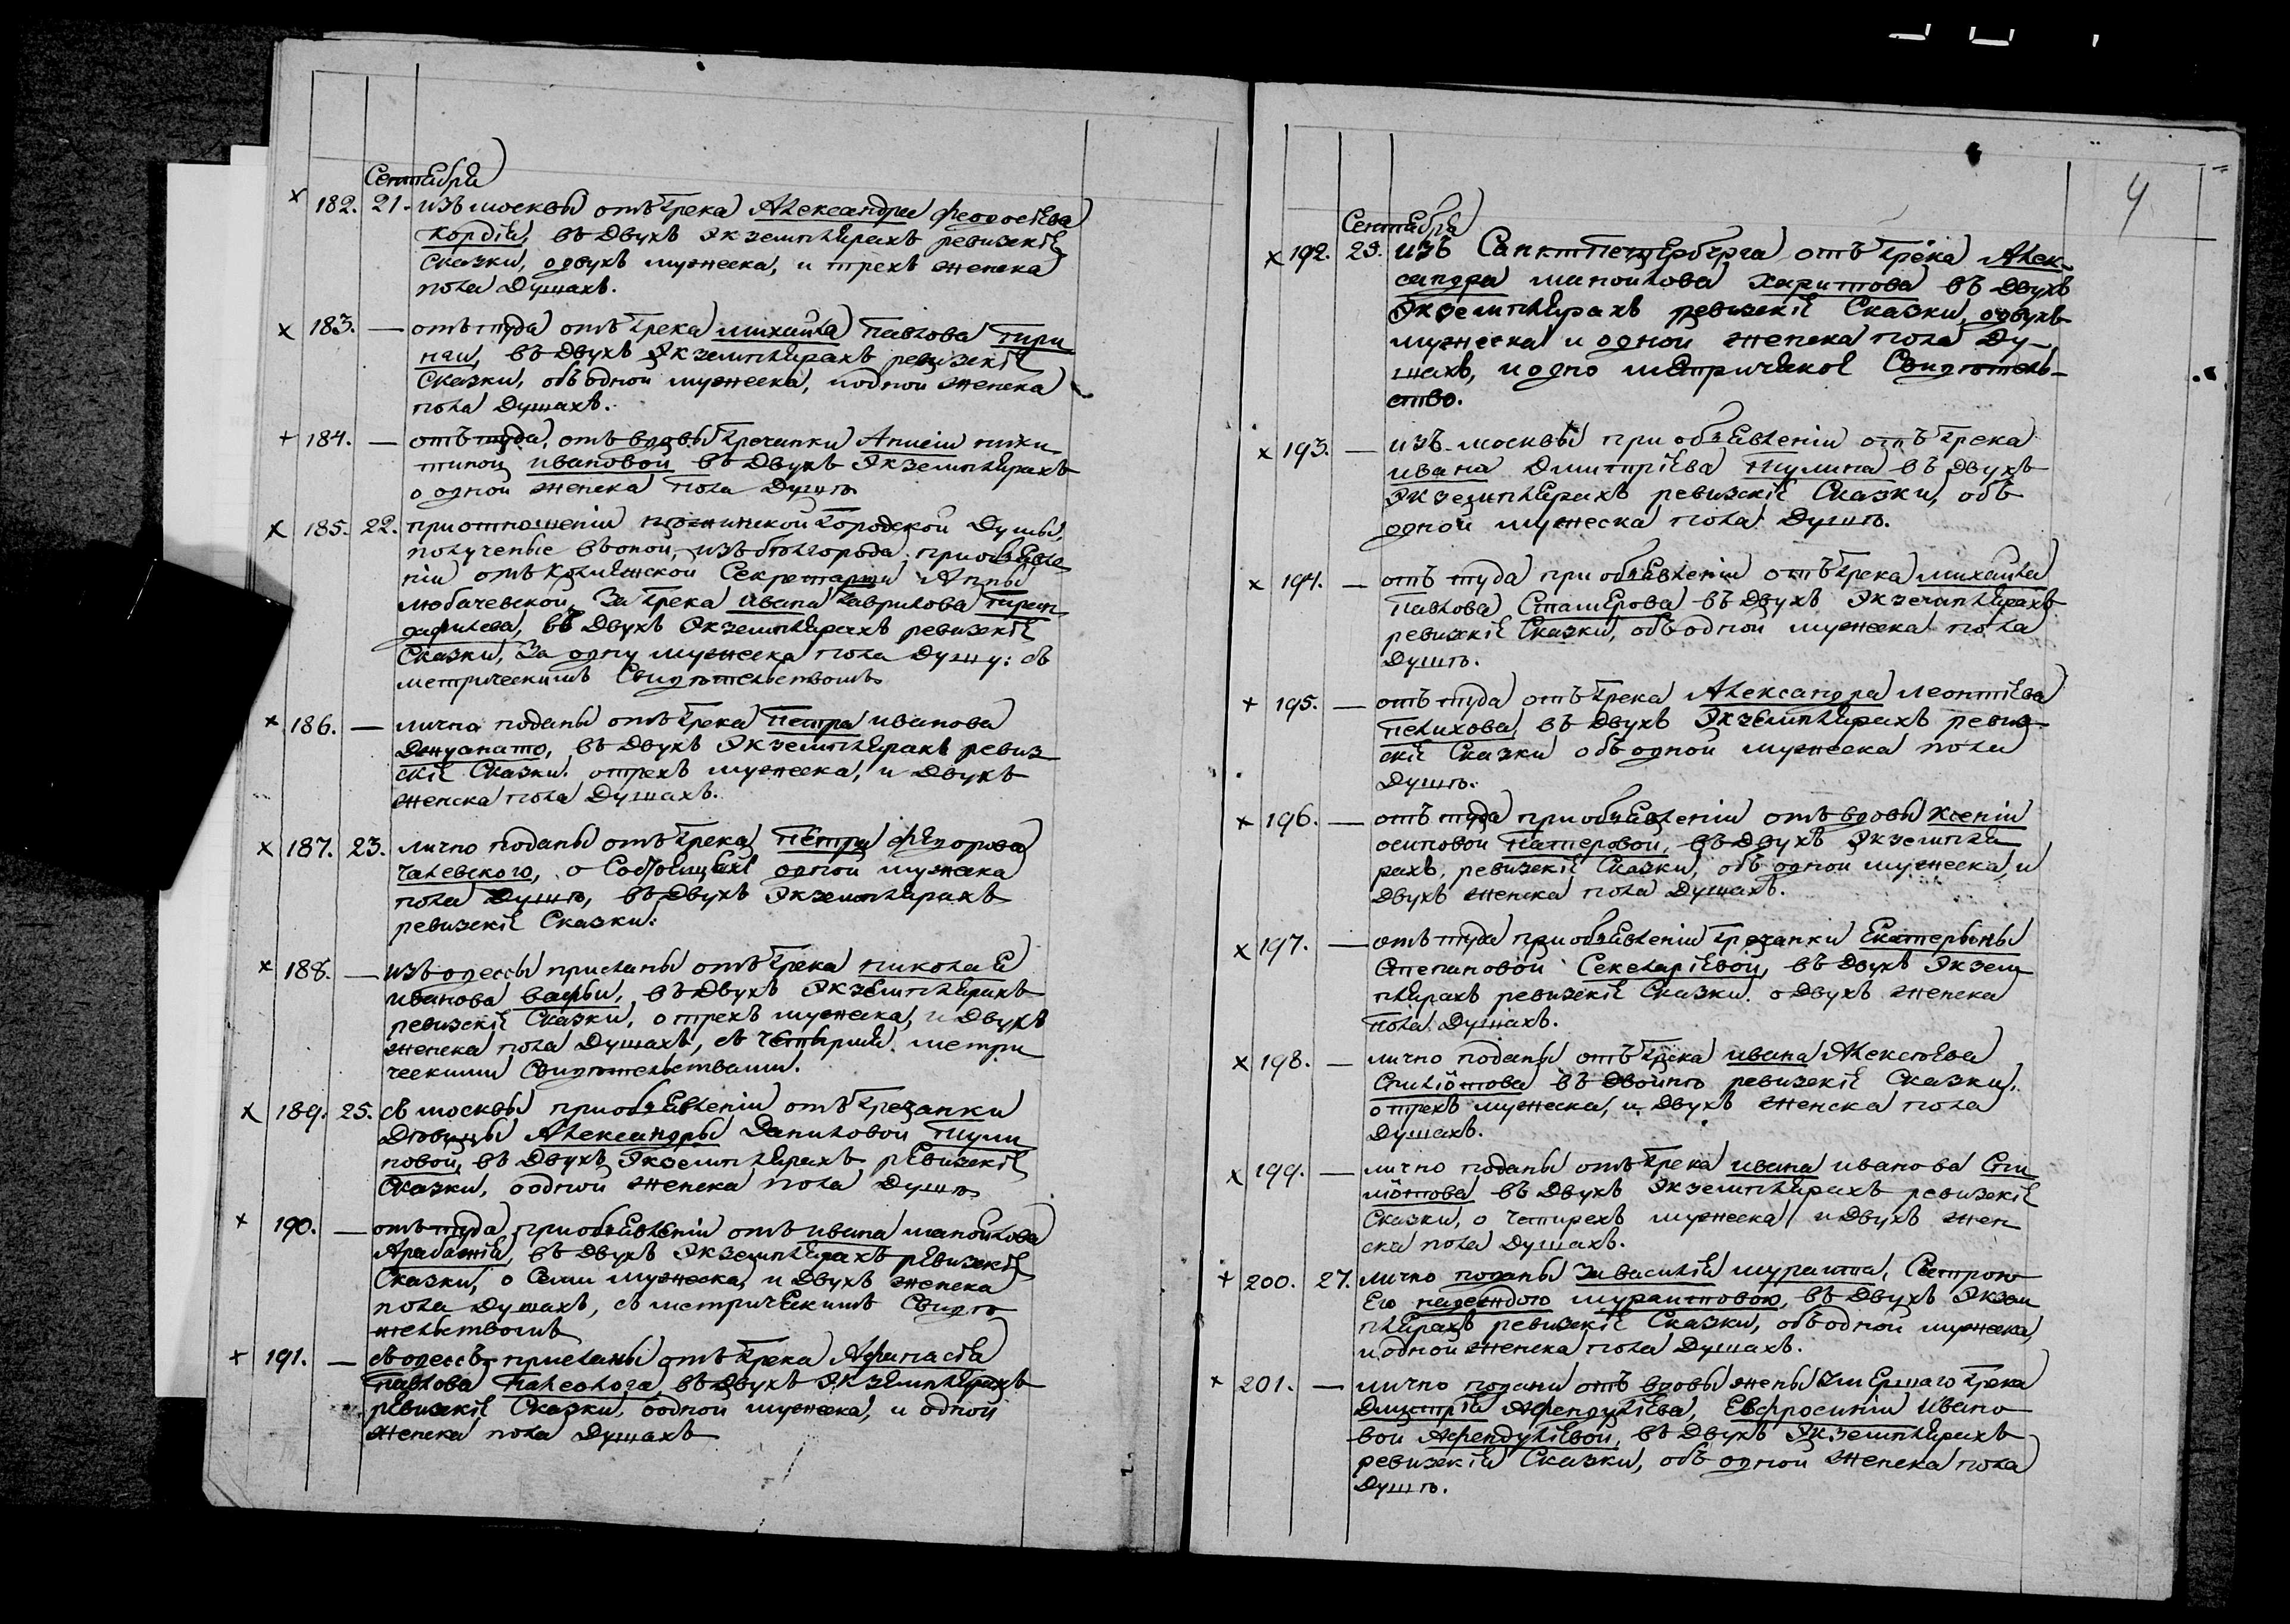 Сентября
× 182. 21. изъ москвы отъ Грека Александра Феодосіева
Кордіи, въ Двухъ Экземплярахъ ревизскіе
Сказки, о двухъ мужеска, и трехъ женска
пола Душахъ.
× 183. — отъ туда отъ Грека михаила Павлова
въ Двухъ Экземплярахъ ревизскіе
Сказки, объ одной мужеска, и одной женска
пола Душахъ.
+ 184. — отъ туда, отъ вдовы Гречанки Анисіи ники
тиной ивановой въ Двухъ Экземплярахъ
о одной женска пола Душѣ
× 185. 22. при отношеніи нѣжинской Городской Думы,
полученые въ оной, изъ бѣлгорода при объявле
ніи отъ Колежской Секретарши Анны
Любачевской, За Грека ивана Гаврилова Трен
дафилева, въ Двухъ Экземплярахъ ревизскіе
Сказки, За одну мужеска пола Душу: съ
метрическимъ Свидѣтельствомъ
× 186. — лично поданы отъ Грека Петра иванова
въ Двухъ Экземплярахъ ревиз
скіе Сказки. о трехъ мужеска, и Двухъ
женска пола Душахъ.
× 187. 23. лично поданы отъ Грека Петра Федорова
Чалевского, о одной мужеска
пола Душѣ, въ Двухъ Экземплярахъ
ревизскіе Сказки.
× 188. — изъ одессы присланы отъ Грека николая
иванова вафы, въ Двухъ Экземплярахъ
ревизскіе Сказки, о трехъ мужеска, и Двухъ
женска пола Душахъ, съ четырмя метри
ческими Свидѣтельствами.
× 189. 25. съ москвы при объявленіи отъ Гречанки
Дѣвицы Александры Даниловой Шули
новой, въ Двухъ Экземплярахъ ревизскіе
Сказки, о одной женска пола Душѣ
× 190. — отъ туда, при объявленіи отъ ивана манойлова
Арабажіи, въ Двухъ Экземплярахъ ревизскіе
Сказки, о Семи мужеска, и Двухъ женска
пола Душахъ, съ метрическимъ Свидѣ
тельствомъ
+ 191. — съ одессъ присланы отъ Грека Афанасія
Павлова Палеолога въ Двухъ Экземплярахъ
ревизскіе Сказки, о одной мужеска, и одной
женска пола Душахъ
4
Сентября
× 192. 25. изъ Санктпетербурга отъ Грека Алек
сандра манойлова Харитова въ Двухъ
Экземплярахъ ревизскіе Сказки, о двухъ
мужеска и одной женска пола Ду-
шахъ, и одно метрическое Свидѣтель-
ство.
× 193. — изъ москвы при объявленіи отъ Грека
ивана Дмитріева Шулина въ Двухъ
Экземплярахъ ревизскіе Сказки, объ
одной мужеска пола Душѣ.
× 194. — отъ туда при объявленіи отъ Грека михаила
Павлова Стамерова въ Двухъ Экземплярахъ
ревизскіе Сказки, объ одной мужеска пола
Душѣ.
+ 195. — отъ туда отъ Грека Александра Леонтіева
Пелихова, въ Двухъ Экземплярахъ ревиз-
скіе Сказки объ одной мужеска пола
Душѣ.
× 196. — отъ туда при объявленіи отъ вдовы Ксеніи
осиповой Патеровой, въ Двухъ Экземпля
рахъ, ревизскіе Сказки, объ одной мужеска, и
Двухъ женска пола Душахъ.
× 197. — отъ туда при объявленіи Гречанки Екатерыны
Степановой Секелоріевой, въ Двухъ Экзем
плярахъ ревизскіе Сказки. о Двухъ женска
пола Душахъ.
× 198. — лично поданы отъ Грека ивана Алексѣева
Спиліотова въ Двойнѣ ревизскіе Сказки,
о трехъ мужеска, и Двухъ женска пола
Душахъ.
× 199. — лично поданы отъ Грека ивана иванова Спи
ліотова въ Двухъ Экземплярахъ ревизскіе
Сказки, о Четирехъ мужеска и Двухъ жен
ска пола Душахъ.
+ 200. 27. лично поданы За василія мурашта, Сестрою
Его надеждою въ Двухъ Экзем
плярахъ ревизскіе Сказки, объ одной мужеска,
и одной женска пола Душахъ.
+ 201. — лично подани отъ вдовы жены Умершаго Грека
Дмитрія Афендуліева, Евфросиніи ивано
вой Афендуліевой, въ Двухъ Экземплярахъ
ревизскія Сказки, объ одной женска пола
Душѣ.